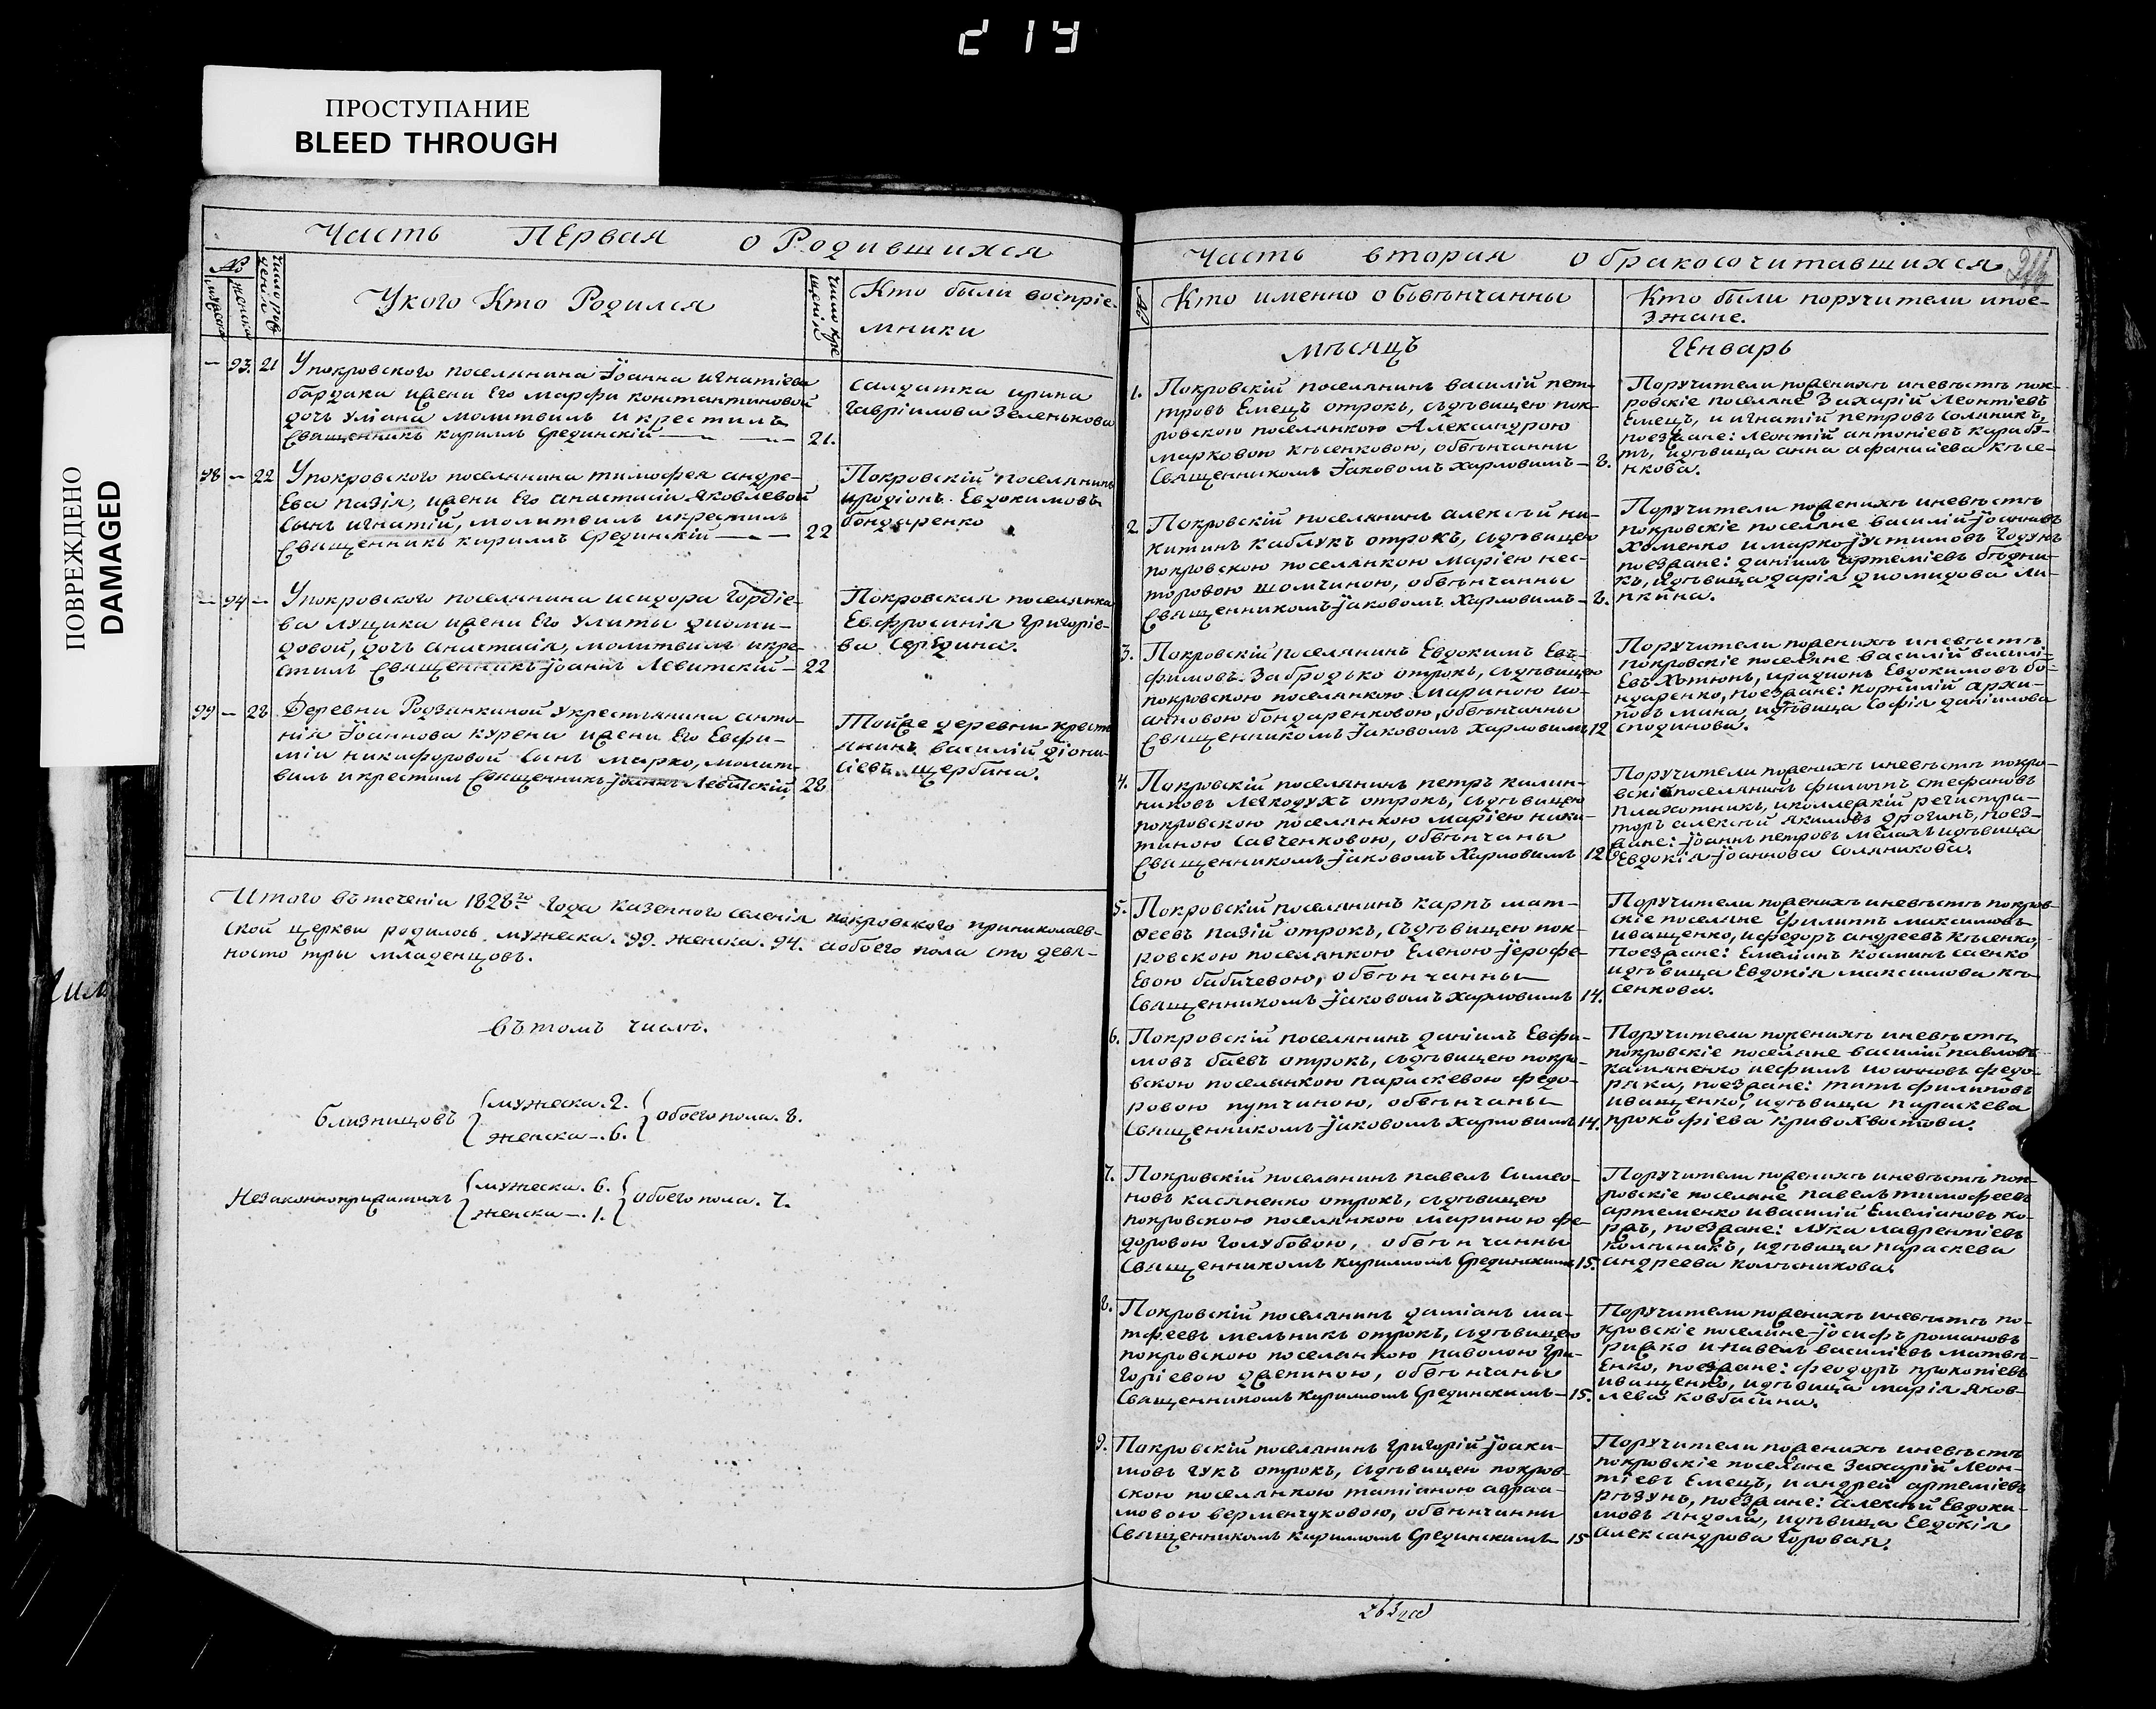 214
ПРОСТУПАНИЕ
BLEED THROUGH
ПОВРЕЖДЕНО
DAMAGED
Часть ПЕрвая о Родившихся
№
мужеска
женска
Число рож
денія
Укого Кто Родился
Число кре
щенія
Кто были воспріе-
мники
— 93. 21 Упокровского поселянина Іоанна игнатіева
бардака ижени Его марфи константиновой
дочь уліана молитвилъ и крестилъ
Священникъ кириллъ Срединскій — 21.
Салдатка ирина
Гавріилова Зеленькова
98 — 22 Упокровского поселянина тимофея андре-
Ева пазія, ижени Его анастасіи яковлевой
Сынъ игнатій, молитвилъ икрестилъ
Священникъ кириллъ Срединскій — 22
Покровскій поселянинъ
иродіонъ Евдокимовъ
бондаренко
— 94 — Упокровского поселянина исидора Гордіе-
ва лущика ижени Его улиты диоми-
довой, дочь анастасія, молитвилъ икре-
стилъ Священникъ Іоаннъ Левитскій — 22
Покровская поселянка
Евфросинія Григоріе-
ва Середина.
99 — 28 Деревни Родзянкиной укрестьянина анто-
нія Іоаннова курени ижени Его Евфи-
міи никифоровой Сынъ марко, молит-
вилъ икрестилъ Священникъ Іоаннъ Левитскій 28
Тойже деревни крестья
янинъ василій діони-
сіевъ щербина.
Итого втеченіи 1828го года казенного селенія покровского приниколаев-
ской церкви родилось мужеска. 99. женска. 94. аобоего пола сто девя-
носто три младенцовъ.
вътомъ числѣ.
Близнецовъ
мужеска. 2.
женска —. 6.
обоего пола. 8.
Незаконноприжитыхъ
мужеска. 6.
женска —. 1.
обоего пола. 7.
Часть вторая обракосочитавшихся
№
Кто именно обѣвѣнчанны
Кто были поручители ипое-
зжане.
мѣсяцъ Генварь
1. Покровскій поселянинъ василій пет-
тровъ Емецъ отрокъ, сьдѣвицею пок-
ровскою поселянкою Александрою
марковою кѣсенковою, обвѣнчанни
Священникомъ Іаковомъ харловимъ — 8.
Поручители поженихѣ иневѣстѣ пок-
ровскіе поселяне Захарій Леонтіевъ
Емецъ, и игнатій петровъ Соляникъ,
поезжане: Леонтій антоніевъ карабу-
тъ, идѣвица анна афанасіева кѣсе-
нкова.
2. Покровскій поселянинъ алексѣй ни-
китинъ каблукъ отрокъ, сьдѣвицею
покровскою поселянкою маріею нес-
торовою шомчиною, обвѣнчанны
Священникомъ Іаковомъ Харловимъ — 8.
Поручители поженихѣ иневѣстѣ
покровскіе поселяне василій Іоанновъ
Хоменко имарко Іустимовъ Годунъ
поезжане: даніилъ артеміевъ бѣдни-
къ, идѣвица дарія диомидова ли-
пкина.
3. Покровскій поселянинъ Евдокимъ Евъ-
фимовъ Забродько отрокъ, сьдѣвицею
покровскою поселянкою мариною ио-
анновою бондаренковою, обвѣнчанны
Священникомъ Іаковомъ Харловимъ 12
Поручители поженихѣ иневѣстѣ
покровскіе поселяне василій василі-
Евъ Хѣтюнъ, иродионъ Евдокимовъ бо-
ндаренко, поезжане: корнилій архи-
повъ мина, идѣвица Софія даніилова
сподинова.
4. Покровскій поселянинъ петръ калин-
никовъ Легкодухъ отрокъ, сьдѣвицею
покровскою поселянкою маріею ники-
тиною Савченковою, обвѣнчаны
Священникомъ Іаковомъ Харловимъ 12
Поручители поженихѣ иневѣстѣ покро-
вскій поселянинъ филипъ стефановъ
плахотникъ, иколлежкій регистра-
торъ алексѣй якимовъ дрогинъ, поез-
жане: Іоаннъ петровъ мелахъ идѣвица
Евдокія Іоаннова Соляникова.
5. Покровскій поселянинъ карпъ мат-
феевъ пазій отрокъ, сьдѣвицею пок-
ровскою поселянкою Еленою Іерофе-
Евою бабичевою, обвѣнчанны
Священникомъ Іаковомъ харловимъ 14.
Поручители поженихѣ иневѣстѣ покров-
скіе поселяне филиппъ максимовъ
иващенко, ифедоръ андреевъ кѣсенко,
Поезжане: Емелянъ косминъ саенко
идѣвица Евдокія максимова кѣ-
сенкова.
6. Покровскій поселянинъ даніилъ Евфи-
мовъ баевъ отрокъ, сьдѣвицею покро-
вскою поселянкою параскевою федо-
ровою путчиною, обвѣнчаны
Священникомъ Іаковомъ харловимъ 14.
Поручители поженихѣ иневѣстѣ
покровскіе поселяне василій павловъ
касяненко иефимъ иоанновъ федо-
ряка, поезжане: титъ филиповъ
иващенко, идѣвица параскева
прокофіева кривохвостова.
7. Покровскій поселянинъ павелъ Симео-
новъ касяненко отрокъ, сьдѣвицею
покровскою поселянкою мариною фе-
доровою голубовою, обвѣнчанны
Священникомъ кирилломъ Срединскимъ 15.
Поручители поженихѣ иневѣстѣ пок-
ровскіе поселяне павелъ тимофеевъ
артеменко ивасилій Емеліановъ ко-
ржъ, поезжане: лука лаврентіевъ
колѣсникъ, идѣвица параскева
андреева колѣсникова.
8. Покровскій поселянинъ даміанъ ма-
тфеевъ мельникъ отрокъ, сьдѣвицею
покровскою поселянкою паволою Гри-
горіевою джениною, обвѣнчаны
Священникомъ кирилломъ Срединскимъ — 15.
Поручители поженихѣ иневѣстѣ по-
кровскіе поселяне Іосифъ романовъ
рижко и павелъ василіевъ матвѣ-
Енко, поезжане: феодоръ прокопіевъ
иващенко, идѣвица марія яков-
лева ковбасина.
9. Покровскій поселянинъ григорій Іоаки-
мовъ гукъ отрокъ, сьдѣвицею покров-
скою поселянкою татіаною авраа-
мовою верменчуковою, обвѣнчанни
Священникомъ кирилломъ Срединскимъ — 15
Поручители поженихѣ иневѣстѣ
покровскіе поселяне Захарій Леон-
тіевъ Емецъ, иандрей артеміевъ
рѣзунъ, поезжане: алексѣй Евдоки-
мовъ яндола, идѣвица Евдокія
александрова горовая.